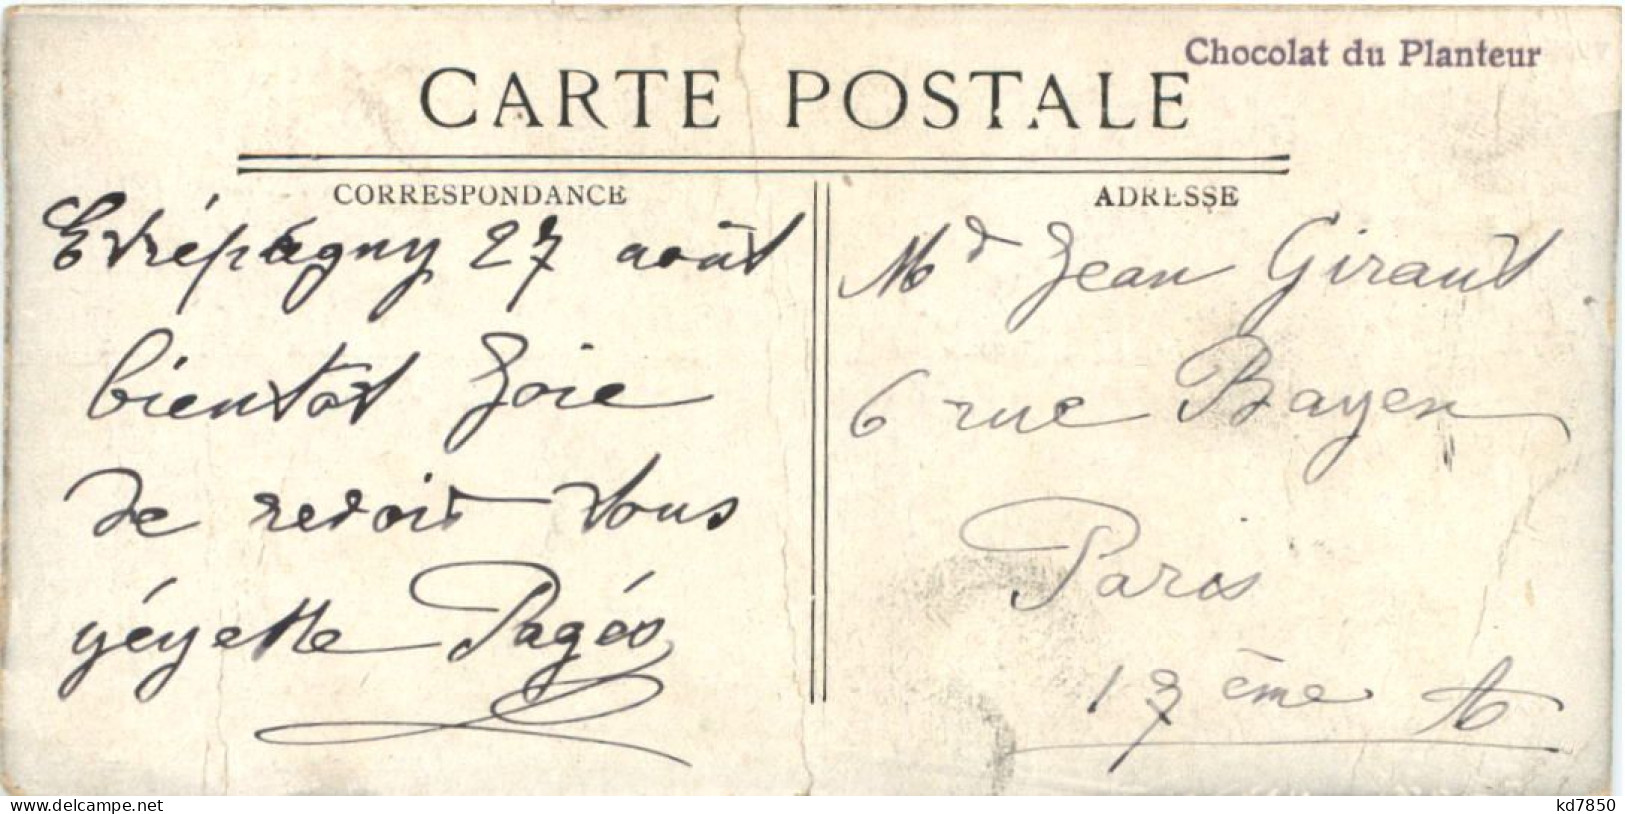 Chocolat du Planteur
CARTE POSTALE
CORRESPONDANCE
Etrépagny 27 août
bientôt joie
de revoir vous
yéyette Pagés
ADRESSE
Md Jean Giraud
6 rue Bayen
Paris
17 ème
www.delcampe.net
kd7850